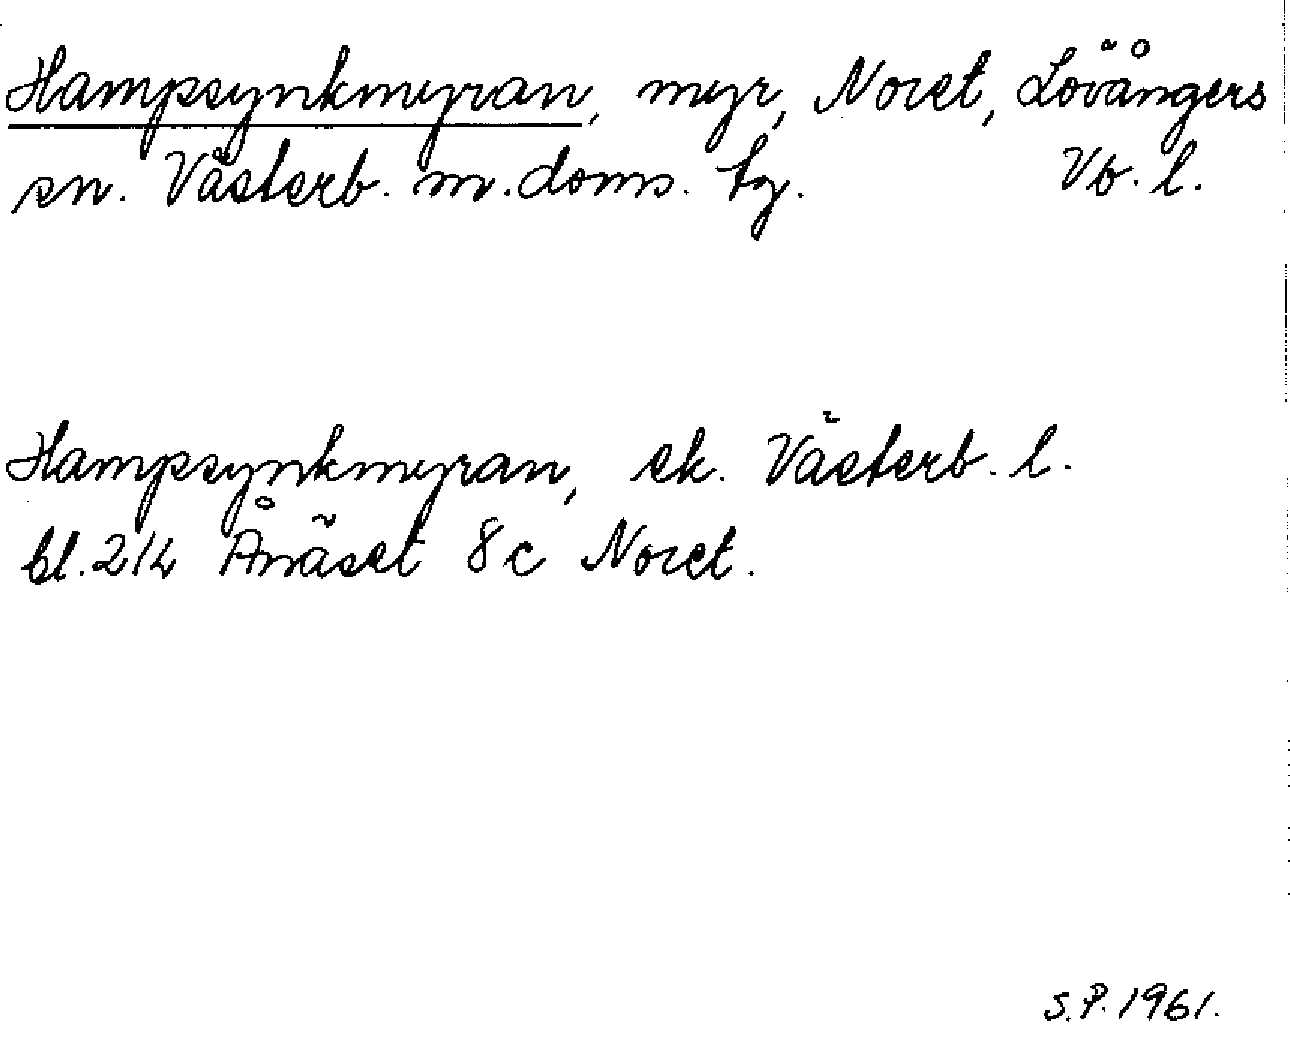 Hampsynkmyran, myr, Noret, Lövångers
sn. Västerb. m. doms. tg. Vb. l.
Hampsynkmyran, ek. Västerb. l.
bl. 214 Ånäset 8c Noret.
S.P. 1961.